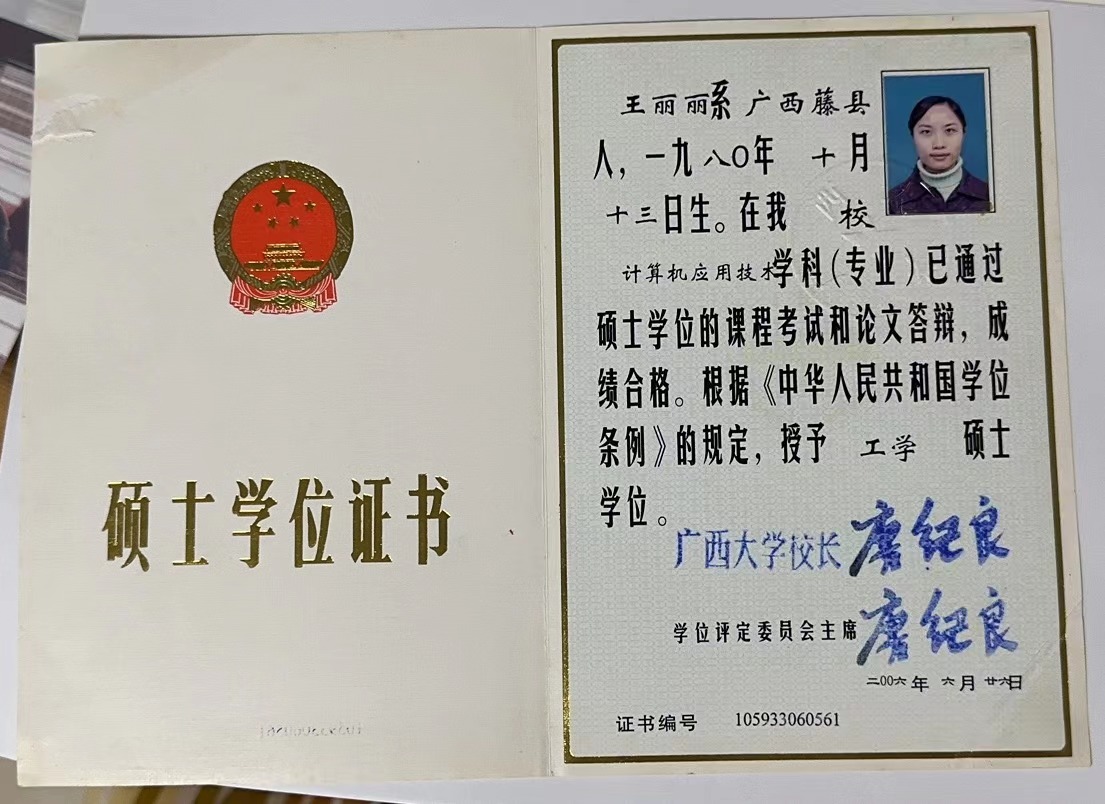 硕士学位证书
王丽丽系广西藤县
人，一九八〇年 十月
十三日生。在我 校
计算机应用技术学科(专业)已通过
硕士学位的课程考试和论文答辩，成
绩合格。根据《中华人民共和国学位
条例》的规定，授予 工学 硕士
学位。
广西大学校长 唐纪良
学位评定委员会主席 唐纪良
二00六年 六月廿六日
证书编号 105933060561